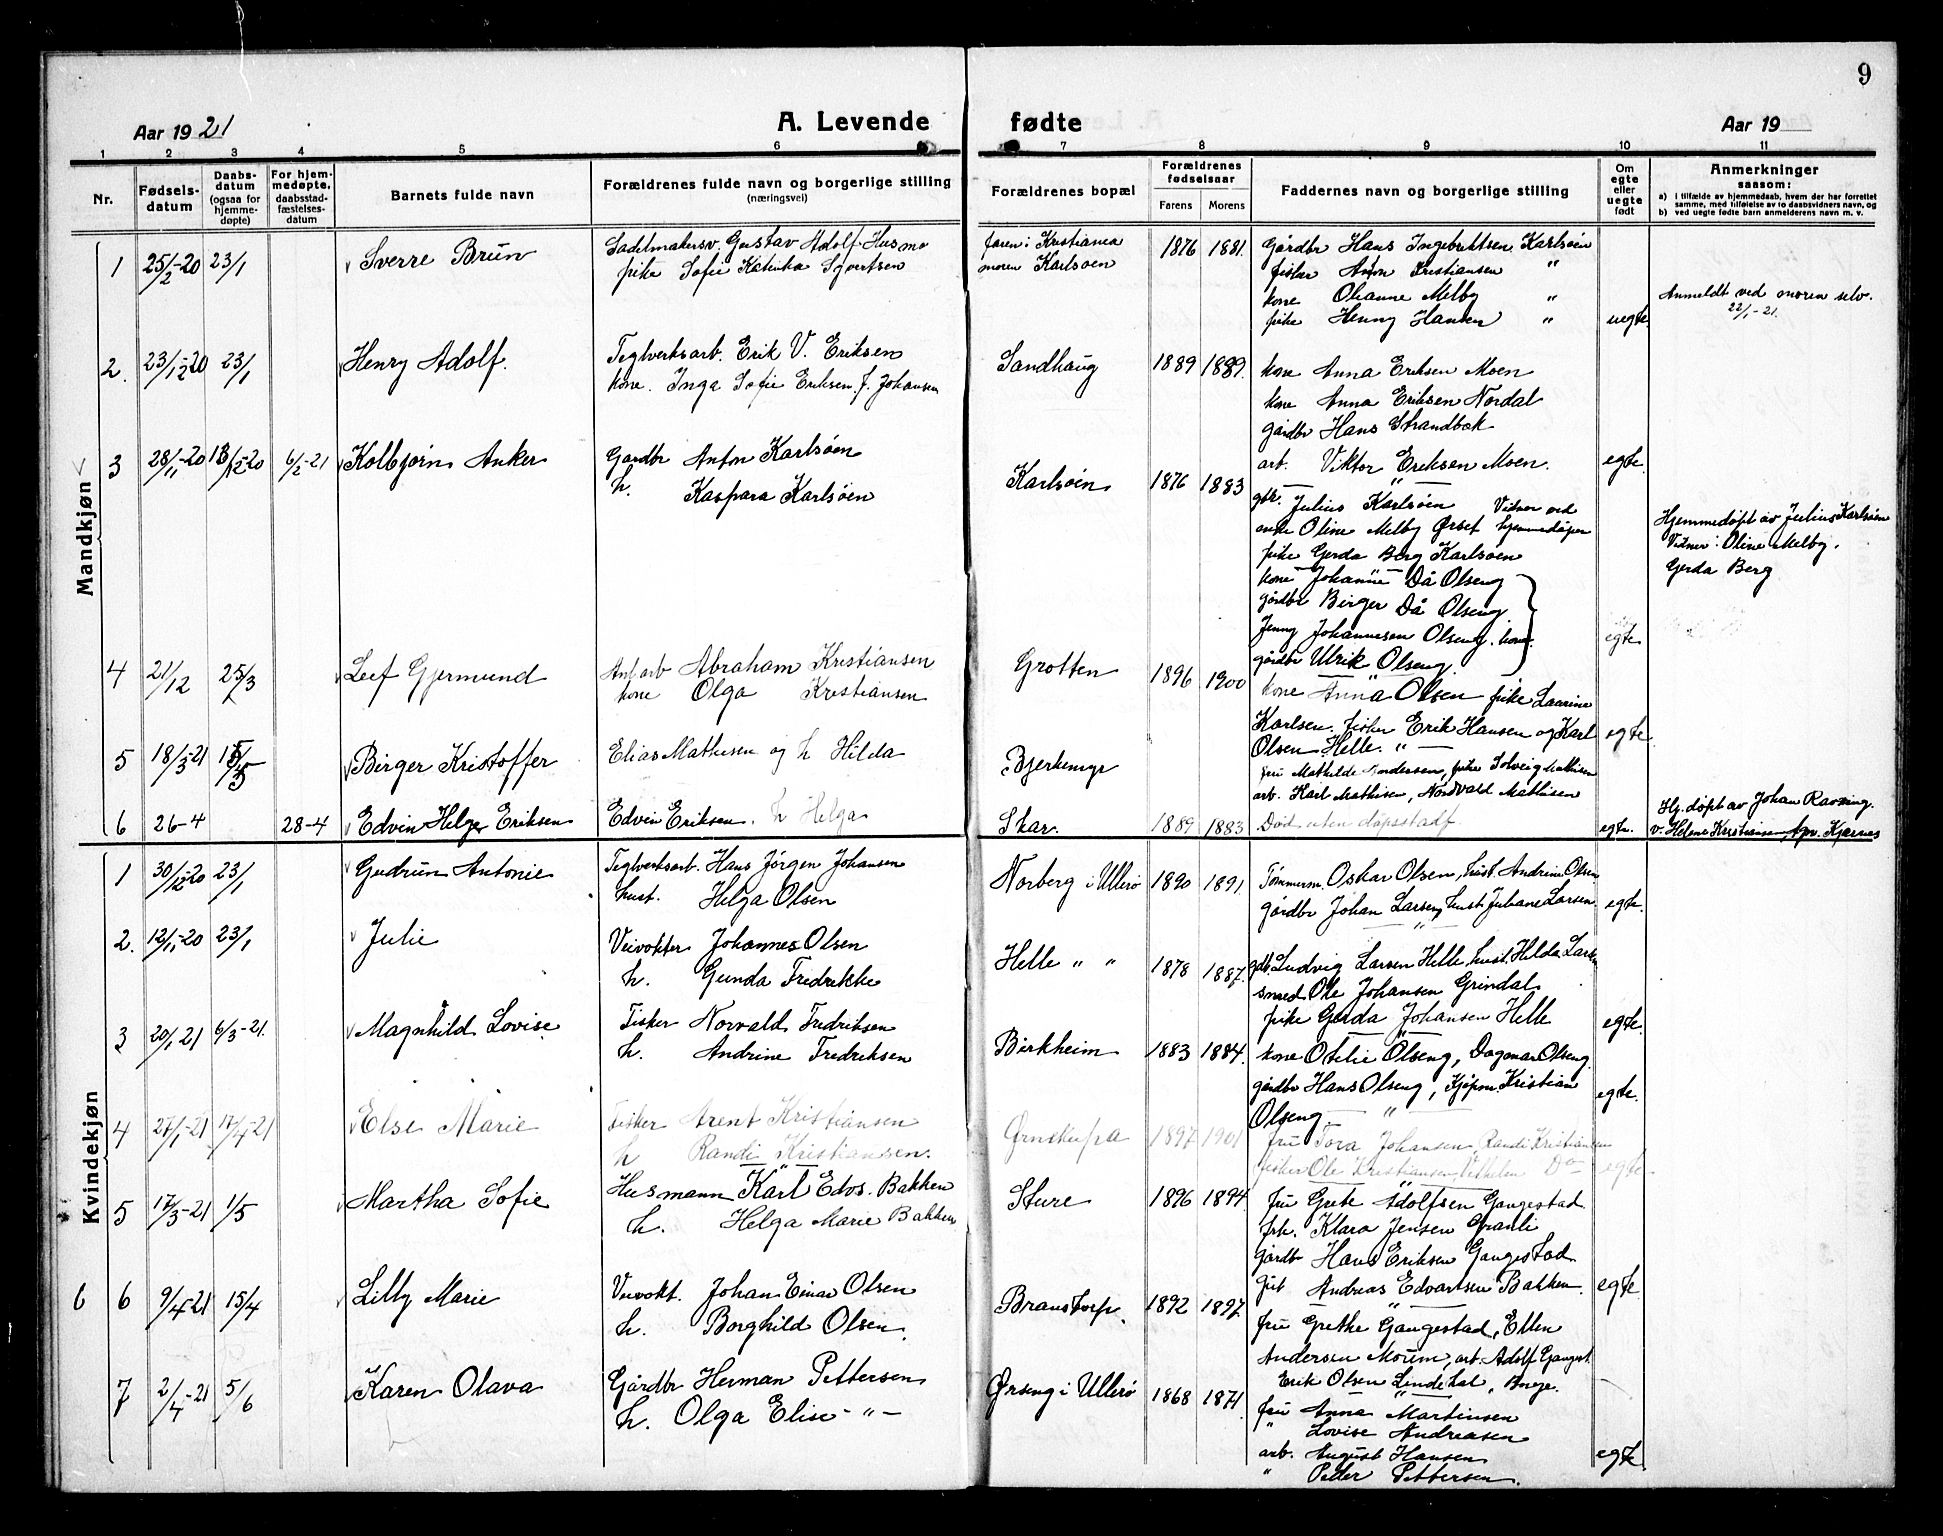 9
Aar 1921
A. Levende fødte
Aar 19
1 2 3 4 5 6 7 8 9 10 11
Nr.
Fødselsdatum
Daabsdatum (ogsaa for hjemmedøpte)
For hjemmedøpte, daabsstadfæstelsesdatum
Barnets fulde navn
Forældrenes fulde navn og borgerlige stilling
(næringsvei)
Forældrenes bopæl
Forældrenes fødselsaar
Farens Morens
Faddernes navn og borgerlige stilling
Om egte eller uegte født
Anmerkninger
saasom:
a) i tilfælde av hjemmedaab, hvem der har forrettet samme, med tilføielse av to daabsvidners navn, og
b) ved uegte fødte barn anmelderens navn m. v.
Mandkjøn
1 25/12-20 23/1 Sverre Brun
Sadelmakersv. Gustav Adolf Husmo
pike Sofie Katinka Syvertsen
faren i Kristiania
moren Karlsøen
1876 1881
Gårdbr Hans Ingebrektsen Karlsøen
fisker Anton Kristiansen "
kone Ohanne Melby "
pike Henny Hansen "
uegte
Anmeldt ved moren selv.
22/1-21.
2. 23/12-20 23/1 Henry Adolf.
Teglverksarb. Erik V. Eriksen
kone. Inga Sofie Eriksen f. Johansen
Sandhaug 1889 1889.
kone Anna Eriksen Moen
kone Anna Eriksen Nordal
gårdbr Hans Strandbak
arb. Viktor Eriksen Moen.
egte.
3 28/11-20 13/12-20 6/2-21 Kolbjørn Anker
Gardbr Anton Karlsøen
h. Kaspara Karlsøen
Karlsøen 1876 1883
gbr. Julius Karlsøen Vidner ved
enke Oline Melby Ørset hjemmedåpen
pike Gerda Berg Karlsøen
kone Johanne Då Olseng
gårdbr Birger Då Olseng
Jenny Johannesen Olseng. kone.
gårdbr Ulrik Olseng.
egte
Hjemmedøpt av Julius Karlsøen
Vidner: Oline Melby.
Gerda Berg
4 21/12 25/3 Leif Gjermund
Anl arb Abraham Kristiansen
kone Olga Kristiansen
Grotten 1896 1900
kone Anna Olsen pike Laurine
Karlsen. fisker Erik Hansen og Karl
Olsen Helle. "
egte
5 18/3-21 15/5 Birger Kristoffer
Elias Mathisen og h Hilda
Bjerkemyr
fru Mathilde Andersen, pike Solveig Mathisen
arb. Karl Mathisen, Nordvald Mathisen
6 26-4 28-4 Edvin Helge Eriksen
Edvin Eriksen. h Helga
Skar. 1889 1883 Død uten dåpsstadf. egte.
Hj. døpt av Johan Ravneng.
v. Helene Kristiansen, Kjærnes
Kvindekjøn
1 30/12-20 23/1 Gudrun Antonie
Teglverksarb. Hans Jørgen Johansen
hust. Helga Olsen
Norberg i Ullerø 1890 1891.
Tømmerm. Oskar Olsen, hust. Andrine Olsen
gårdbr Johan Larsen, hust Juliane Larsen
egte.
2. 12/11-20 23/1 Julie
Veivokter Johannes Olsen
h. Gunda Fredrikke
Helle " " 1878 1887.
gdb. Ludvig Larsen Helle, hust. Hilda Larsen
smed Ole Johansen Grindal
pike Gerda Johansen Helle
egte.
3 20/1 21 6/3-21. Magnhild Lovise
Fisker Norvald Fredriksen
h. Andrine Fredriksen
Birkheim 1883 1884.
kone Otelie Olseng, Dagmar Olseng
gårdbr Hans Olseng, Kjøpm. Kristian
Olseng "
egte.
4 27/1-21 17/4-21 Else Marie
Fisker Arent Kristiansen
h Randi Kristiansen.
1897 1901
fru Tora Johansen, Randi Kristiansen
fisker Ole Kristiansen, Vilhelm Do
egte
5 17/3-21 1/5 Martha Sofie
Husmann Karl Edv. Bakken
h. Helga Marie Bakken
Sture 1896 1894
fru Grete Adolfsen Gangestad
frk. Klara Jensen Granli
gårdbr Hans Eriksen Gangestad
gut Andreas Edvartsen Bakken.
egte
6 6 9/4-21 15/4 Lilly Marie
Veivokt. Johan Einar Olsen
h. Borghild Olsen.
Branstorp. 1892 1897.
fru Grethe Gangestad, Ellen
Andersen Moum, arb. Adolf Gangest.
Erik Olsen Lindedal, Borge.
7 2/4-21 5/6 Karen Olava
Gårdbr Herman Pettersen
h. Olga Elise - " -
Ørseng i Ullerø 1868 1871
fru Anna Martinsen
" Lovise Andreasen
arb. August Hansen
" Peder Pettersen.
egte